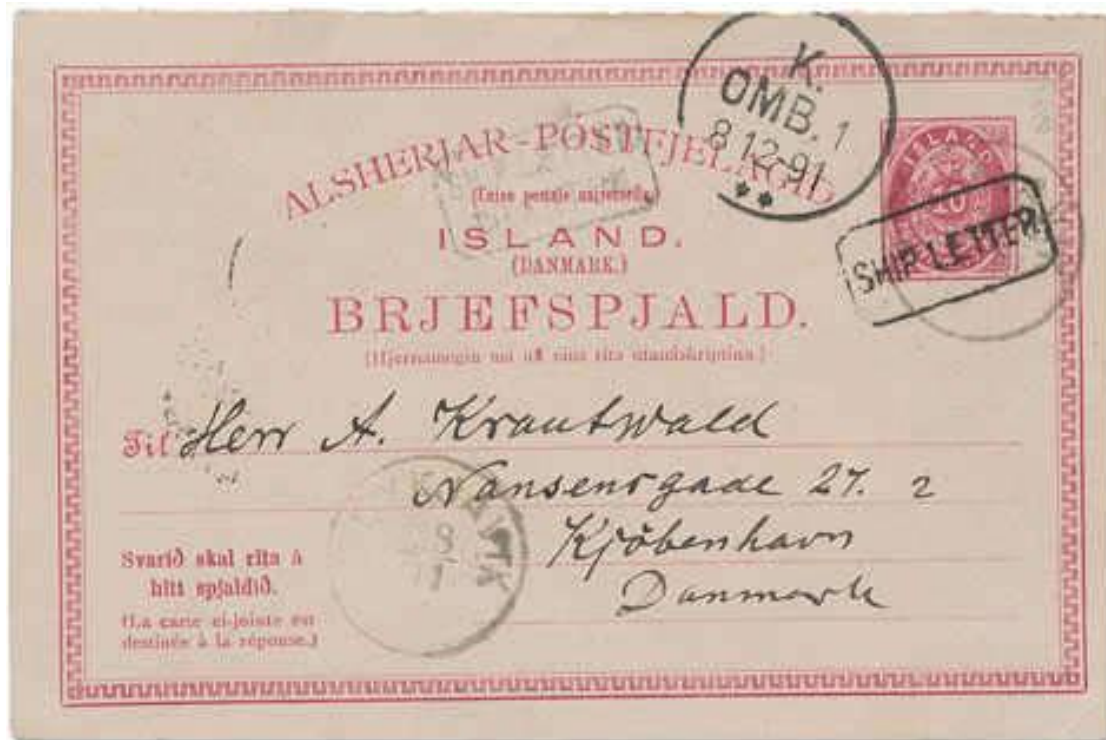 K.
OMB. 1
8 12-91
ALSHERJAR-PÓSTFJELAGIÐ
(Union postale universelle.)
ISLAND.
(DANMARK.)
BRJEFSPJALD.
(Hjernamegin má að eins rita utanáskriptina.)
ISLAND
SHIP LETTER
Til Herr A. Krautwald
Nansensgade 27. 2
Kjöbenhavn
Danmark
Svarið skal rita á
hitt spjaldið.
(La carte ci-jointe est
destinée à la réponse.)